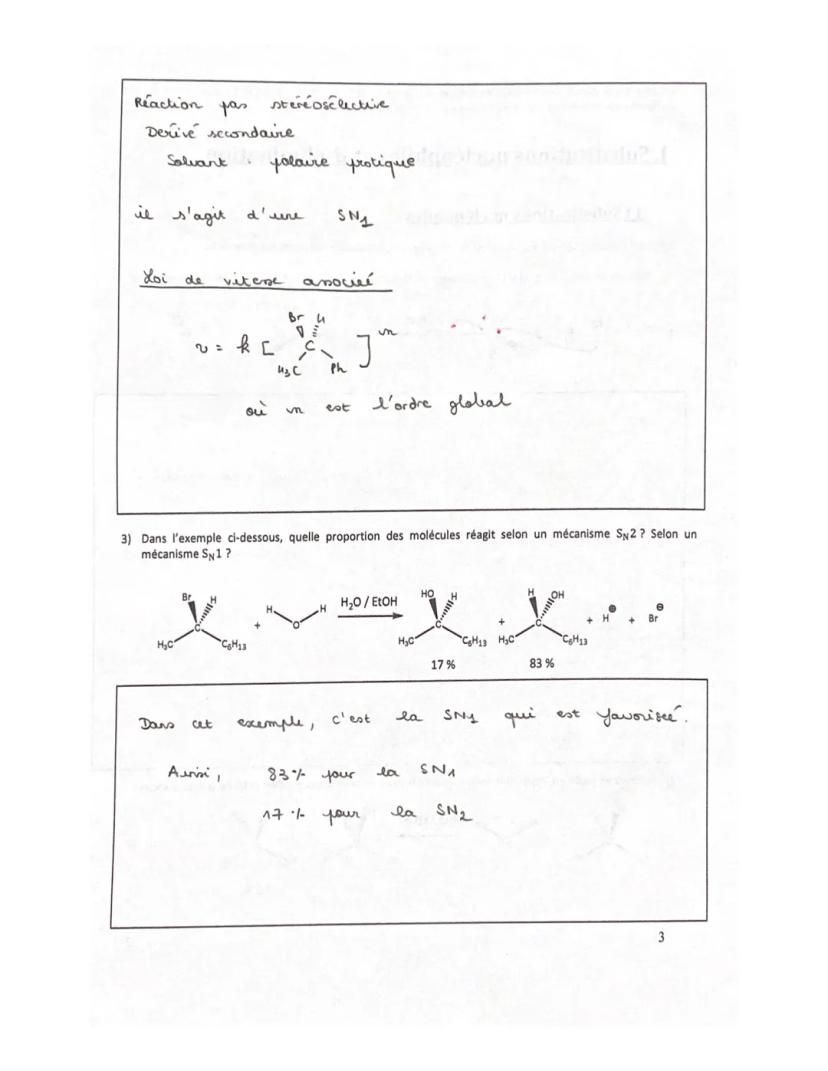 Réaction pas stéréosélective
Dérivé secondaire
Solvant polaire protique
il s'agit d'une SN1
Loi de vitesse associeé
Br H
v = k [ C ]^m
H3C Ph
où m est l'ordre global
3) Dans l'exemple ci-dessous, quelle proportion des molécules réagit selon un mécanisme SN2 ? Selon un
mécanisme SN1 ?
Br H H H H2O / EtOH HO H H OH
C + O C + C + H⊕ + Br⊖
H3C C6H13 H3C C6H13 H3C C6H13
17 % 83 %
Dans cet exemple, c'est la SN1 qui est favoriseé.
Ainsi, 83 % pour la SN1
17 % pour la SN2
3